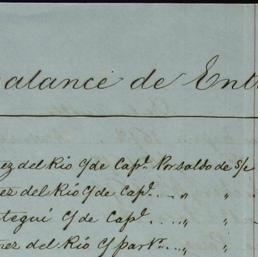 alance de Entr
ez del Rio c/ de Cap.l Por saldo de S/c
ez del Rio c/ de Cap.l . . . „ „
tegui c/ de Cap.l . . . „ „
nez del Rio c/ part.r . . . „ „